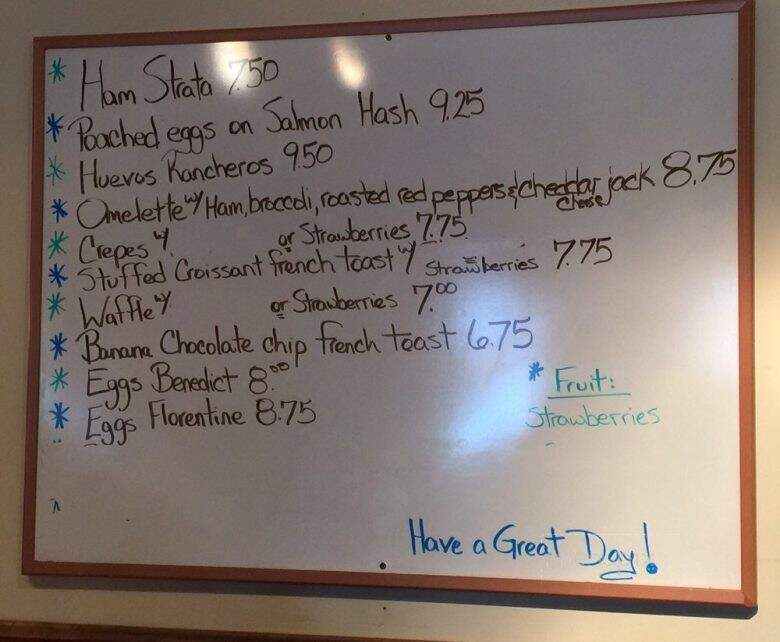 * Ham Strata 7.50
* Poached eggs on Salmon Hash 9.25
* Huevos Rancheros 9.50
* Omelette w/ Ham, broccoli, roasted red peppers & cheddar jack cheese 8.75
* Crepes w/ or Strawberries 7.75
* Stuffed Croissant french toast w/ Strawberries 7.75
* Waffle w/ or Strawberries 7.00
* Banana Chocolate chip french toast 6.75
* Eggs Benedict 8.00
* Eggs Florentine 8.75
* Fruit:
Strawberries
Have a Great Day!